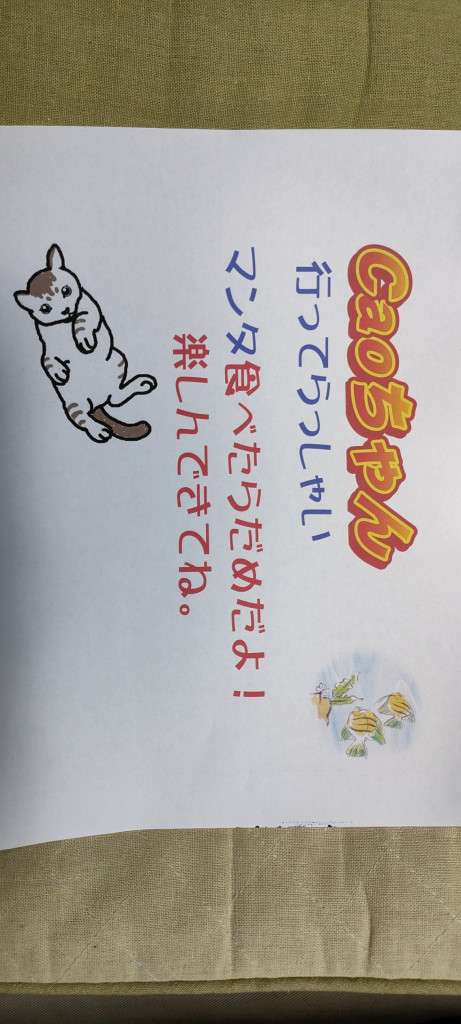 Caoちゃん
行ってらっしゃい
マンタ食べたらだめだよ！
楽しんできてね。